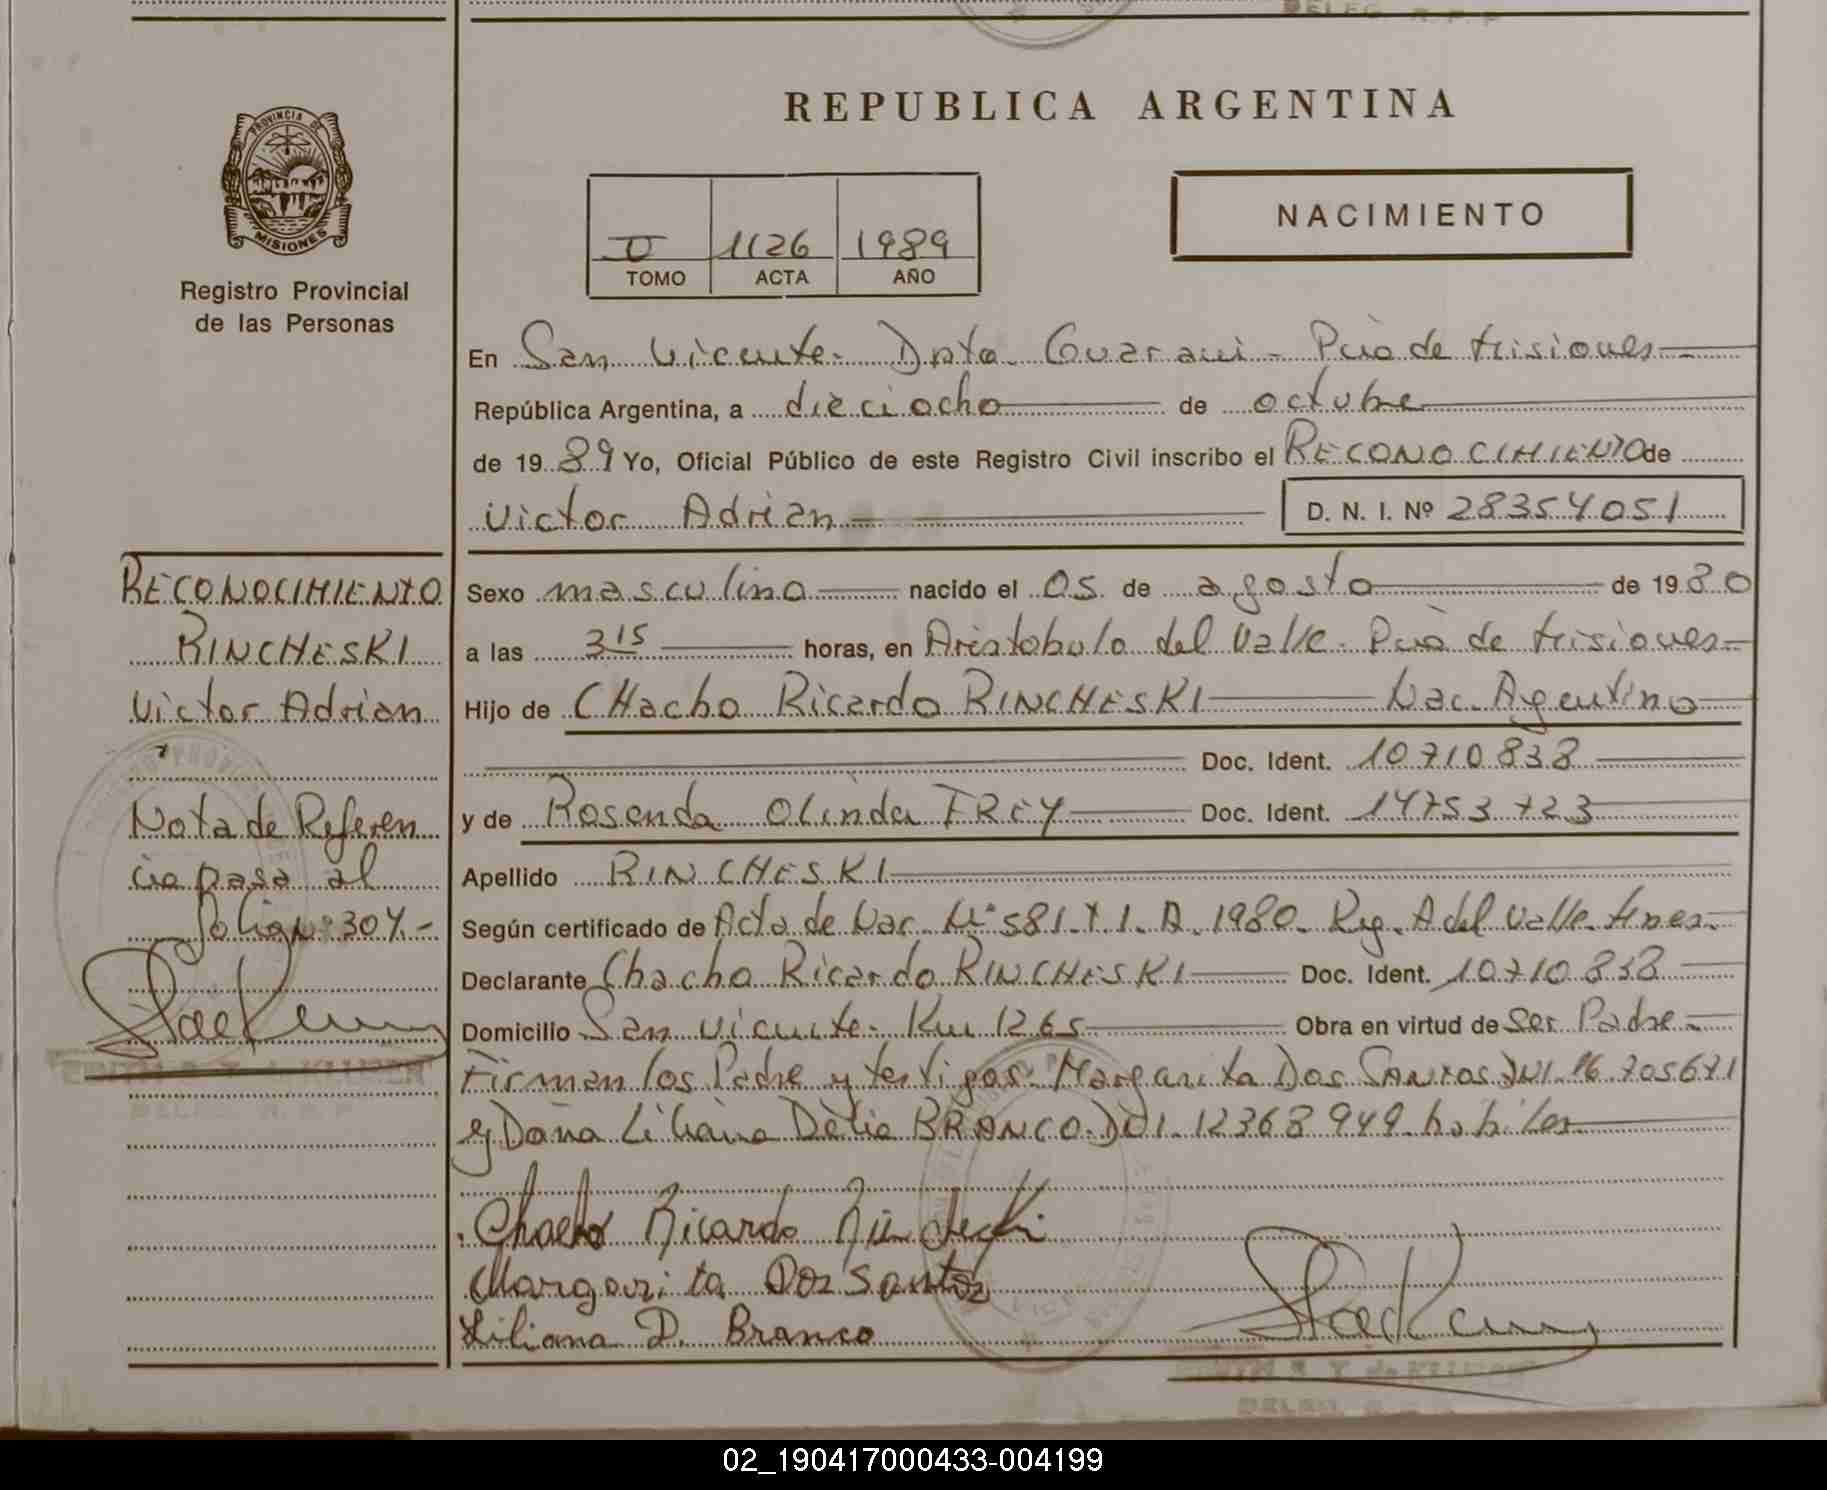 PROVINCIA DE
MISIONES
Registro Provincial
de las Personas
REPUBLICA ARGENTINA
II 1126 1989
TOMO ACTA AÑO
NACIMIENTO
En San Vicente - Dpto. Guarani - Pcia de Misiones
República Argentina, a dieciocho de octubre
de 1989 Yo, Oficial Público de este Registro Civil inscribo el RECONOCIMIENTO de
Victor Adrian D. N. I. Nº 28354051
Sexo masculino nacido el 05 de agosto de 1980
a las 3 15 horas, en Aristobulo del Valle - Pcia de Misiones
Hijo de CHacho Ricardo RINCHESKI Nac. Argentino
Doc. Ident. 10710838
y de Rosenda Olinda FREY Doc. Ident. 14753723
Apellido RINCHESKI
Según certificado de Acta de Nac. Nº 581. T I. A. 1980. Reg. A del Valle. Mnes.
Declarante Chacho Ricardo RINCHESKI Doc. Ident. 10710838
Domicilio San Vicente - Km 1265 Obra en virtud de Ser Padre
Firman los Padre y testigos: Margarita Dos SANTOS DNI. 16705671
y Doña Liliana Delia BRANCO. DNI. 12368949 habiles
Chacho Ricardo Rincheski
Margarita Dos Santos
Liliana D. Branco
RECONOCIMIENTO
RINCHESKI
Victor Adrian
Nota de Referen
cia pasa al
folio Nº 304.-
02_190417000433-004199